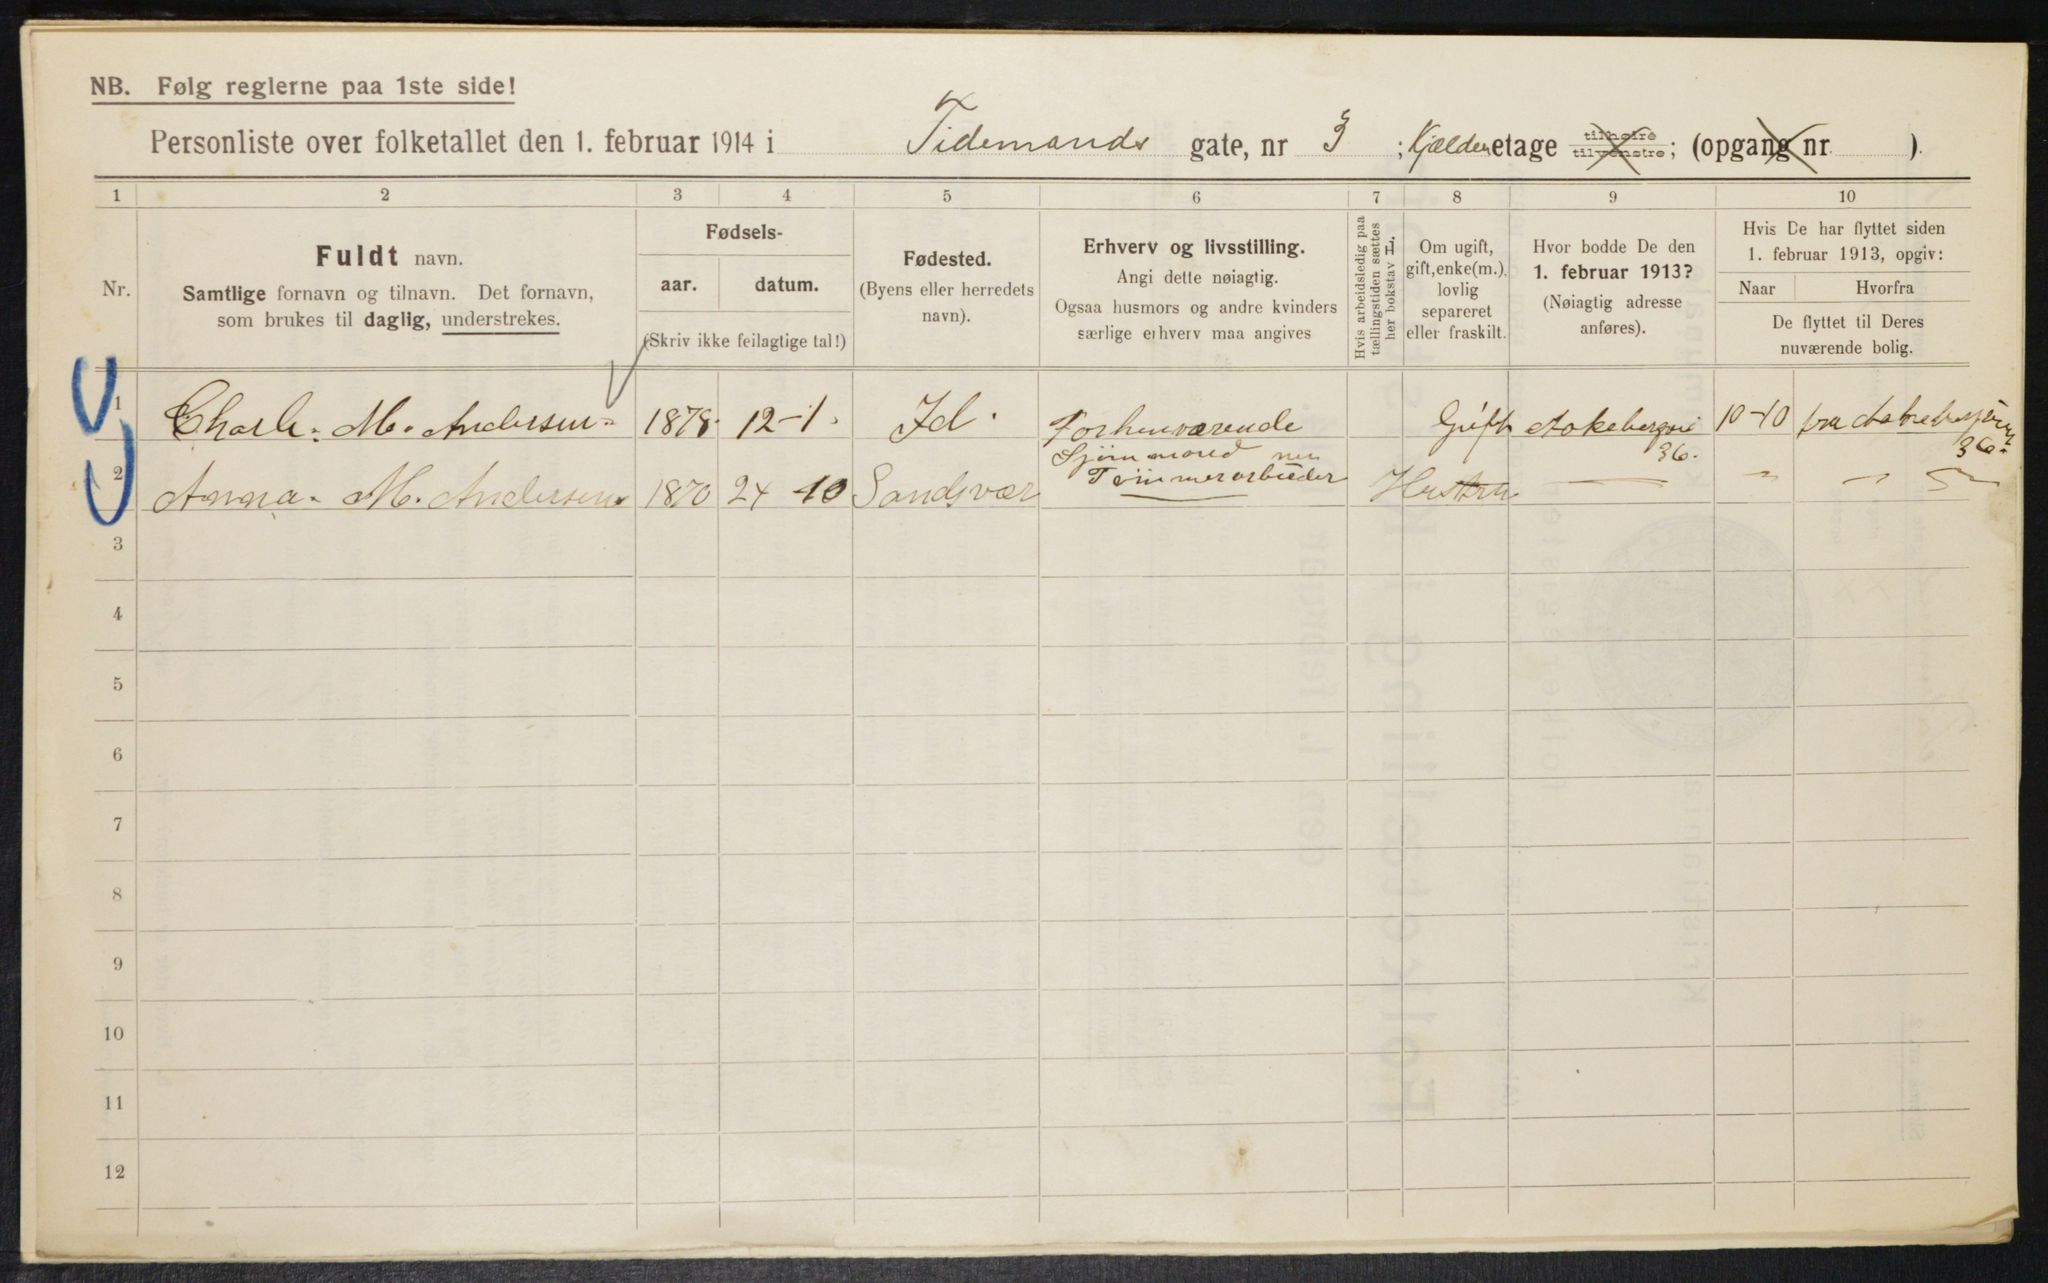 NB. Følg reglerne paa 1ste side!
Personliste over folketallet den 1. februar 1914 i Tidemands gate, nr 3; Kjælder etage tilhøire tilvenstre; (opgang nr ).
1 2 3 4 5 6 7 8 9 10
Nr.
Fuldt navn.
Samtlige fornavn og tilnavn. Det fornavn,
som brukes til daglig, understrekes.
Fødsels-
aar. datum.
(Skriv ikke feilagtige tal!)
Fødested.
(Byens eller herredets
navn).
Erhverv og livsstilling.
Angi dette nøiagtig.
Ogsaa husmors og andre kvinders
særlige erhverv maa angives
Hvis arbeidsledig paa
tællingstiden sættes
her bokstav L.
Om ugift,
gift, enke(m.),
lovlig
separeret
eller fraskilt.
Hvor bodde De den
1. februar 1913?
(Nøiagtig adresse
anføres).
Hvis De har flyttet siden
1. februar 1913, opgiv:
Naar Hvorfra
De flyttet til Deres
nuværende bolig.
1 Charls. M. Andersen 1878. 12-1. Id. Forhenværende Gift Aakebergvei 10-10 fra
Sjømmand nu 36. 36.
Tømmerarbeider
2 Anna. M. Andersen 1870 24 10 Sandsvær Hustru — " — "
3
4
5
6
7
8
9
10
11
12